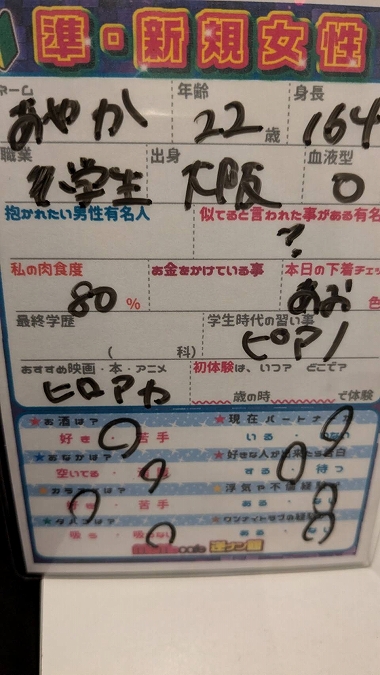 準・新規女性
ネーム 年齢 身長
あやか 22歳 164
職業 出身 血液型
学生 大阪 O
抱かれたい男性有名人 似てると言われた事がある有名
?
私の肉食度 お金をかけている事 本日の下着チェッ
80% あお 色
最終学歴 学生時代の習い事
( 科) ピアノ
おすすめ映画・本・アニメ 初体験は、いつ? どこで?
ヒロアカ 歳の時 で体験
★お酒は? ★現在パートナ
好き・ 苦手 いる・
★おなかは? ★好きな人が出来たら告白
空いてる・ する 待つ
★カラオケは? ★浮気や不倫経験
好き・ 苦手 ある・
★タバコは? ★ワンナイトラブの経験
吸う・吸わない ある・
cafe